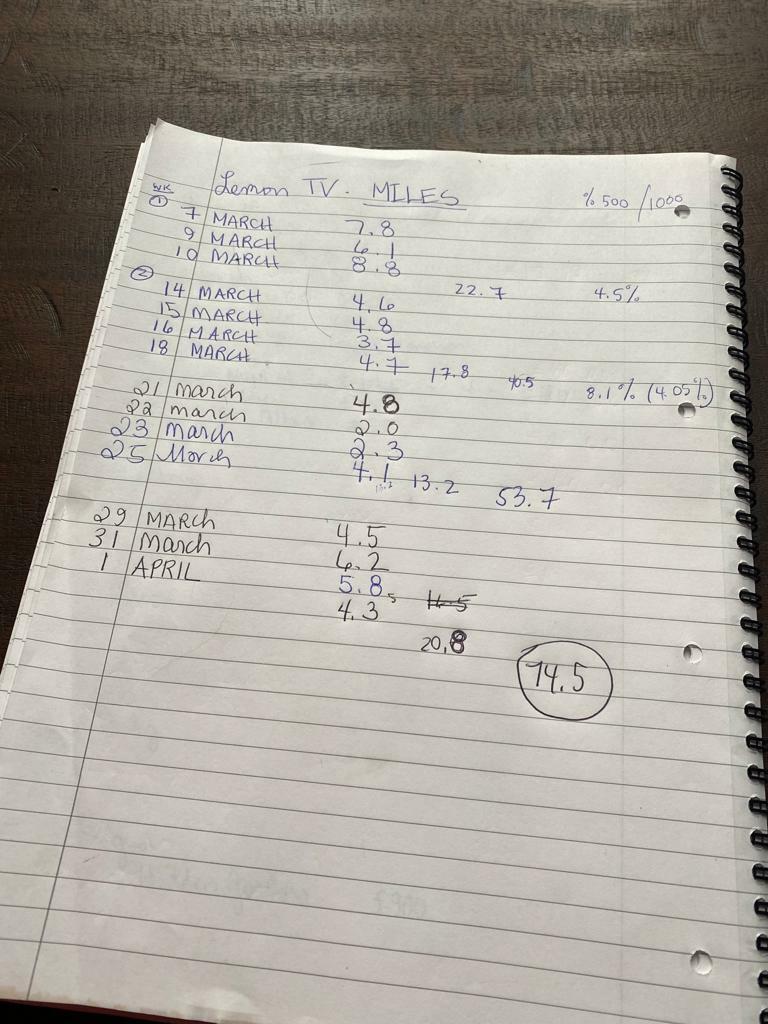 WK Lemon TV. MILES % 500/1000
① 7 MARCH 7.8
9 MARCH 6.1
10 MARCH 8.8
② 22.7 4.5%
14 MARCH 4.6
15 MARCH 4.8
16 MARCH 3.7
18 MARCH 4.7 17.8 40.5 8.1% (4.05%)
21 march 4.8
22 march 2.0
23 march 2.3
25 March 4.1 13.2 53.7
29 MARCH 4.5
31 March 6.2
1 APRIL 5.8
4.3 16.5
20.8
74.5